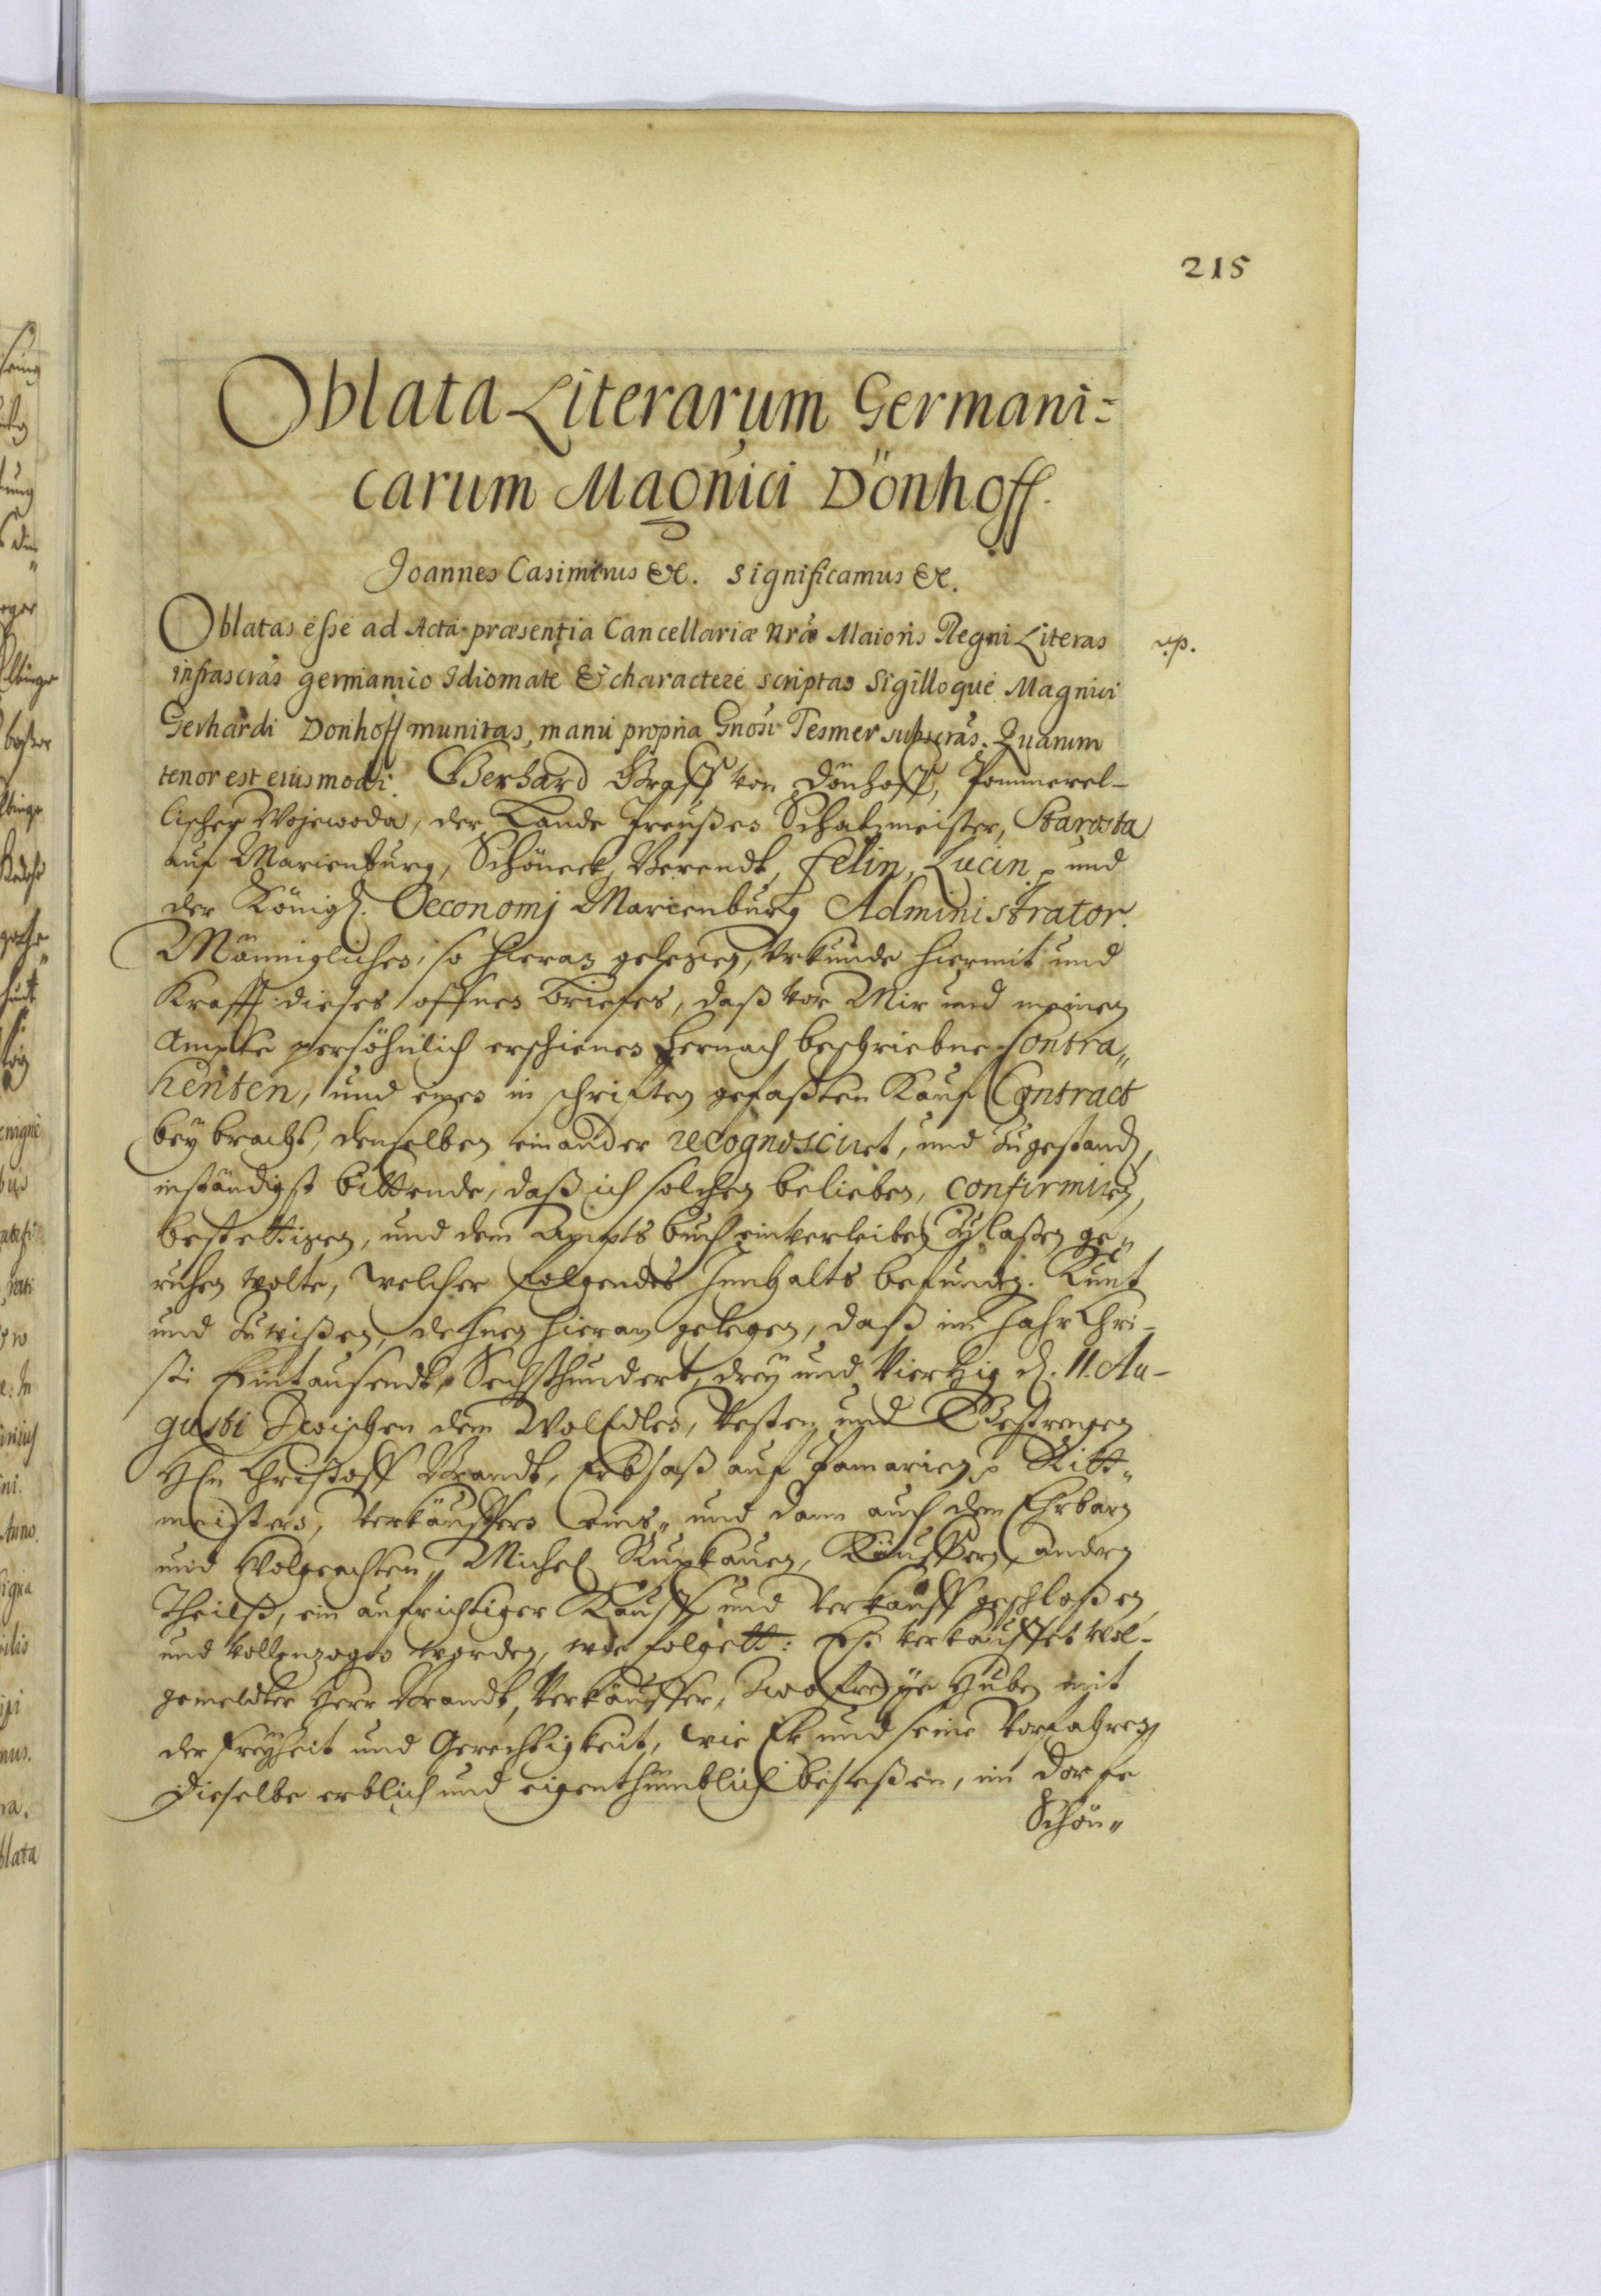 215
Oblata Literarum Germani=
carum Magnici Dönhoff.
Joannes Casimirus &c. Significamus &c.
Oblatas esse ad Acta præsentia Cancellariæ nræ Maioris Regni Literas
infrascras germanico Idiomate & charactere scriptas Sigilloque Magnici
Gerhardi Donhoff munitas, manu propria Gnosi Tesmer subscras. Quarum
tenor est eiusmodi. Gerhard Graff von Dönhoff, Pommerel-
lischer Wojewoda, der Lande Preußen Schatzmeister, Starosta
auf Marienburg, Schöneck, Berendt, Felin, Lucin p und
der Königl. Oeconomj Marienburg Administrator.
Männiglichen, so hieran gelegen, Urkunde hiermit und
Krafft dieses offnen briefes, daß vor Mir und meinen
Ampte persöhnlich erschienen hernach beschriebne Contra„
henten, und einen in schrifften gefaßten Kauf Contract
beÿ bracht, denselben einander recognosciret, und Zugestand,
inständigst bittende, daß ich solchen belieben, confirmiren,
bestettigen, und dem Ampts buch einverleiben Zulaßen ge„
ruhen wolte, welcher folgendes Innhalts befunden. Kunt
und Zuwißen, dehnen hieran gelegen, daß im Jahr Chri-
sti Eintausendt, Sechsthundert, dreÿ und Viertzig d. 11. Au-
gusti Zwischen dem WolEdlen, Vesten und Gestrengen
Hn Christoff Brandt, Erbsaß auf Jamarien p Ritt„
meisters, Verkäuffers eins„ und dann auch dem Ehrbarn
und Wolgeachten, Michel Rupkauen, Käuffern, andern
Theilß, ein aufrichtiger Kauff und Verkauff geschloßen
und vollenzogen worden, wie folgett: Eß verkauffet Wol-
gemeldter Herr Brandt, Verkäuffer, Zwo freÿe Huben mit
der freÿheit und Gerechtigkeit, wie Er und seine Vorfahren
dieselbe erblich und eigenthumblich beseßen, im Dorfe
Schön„